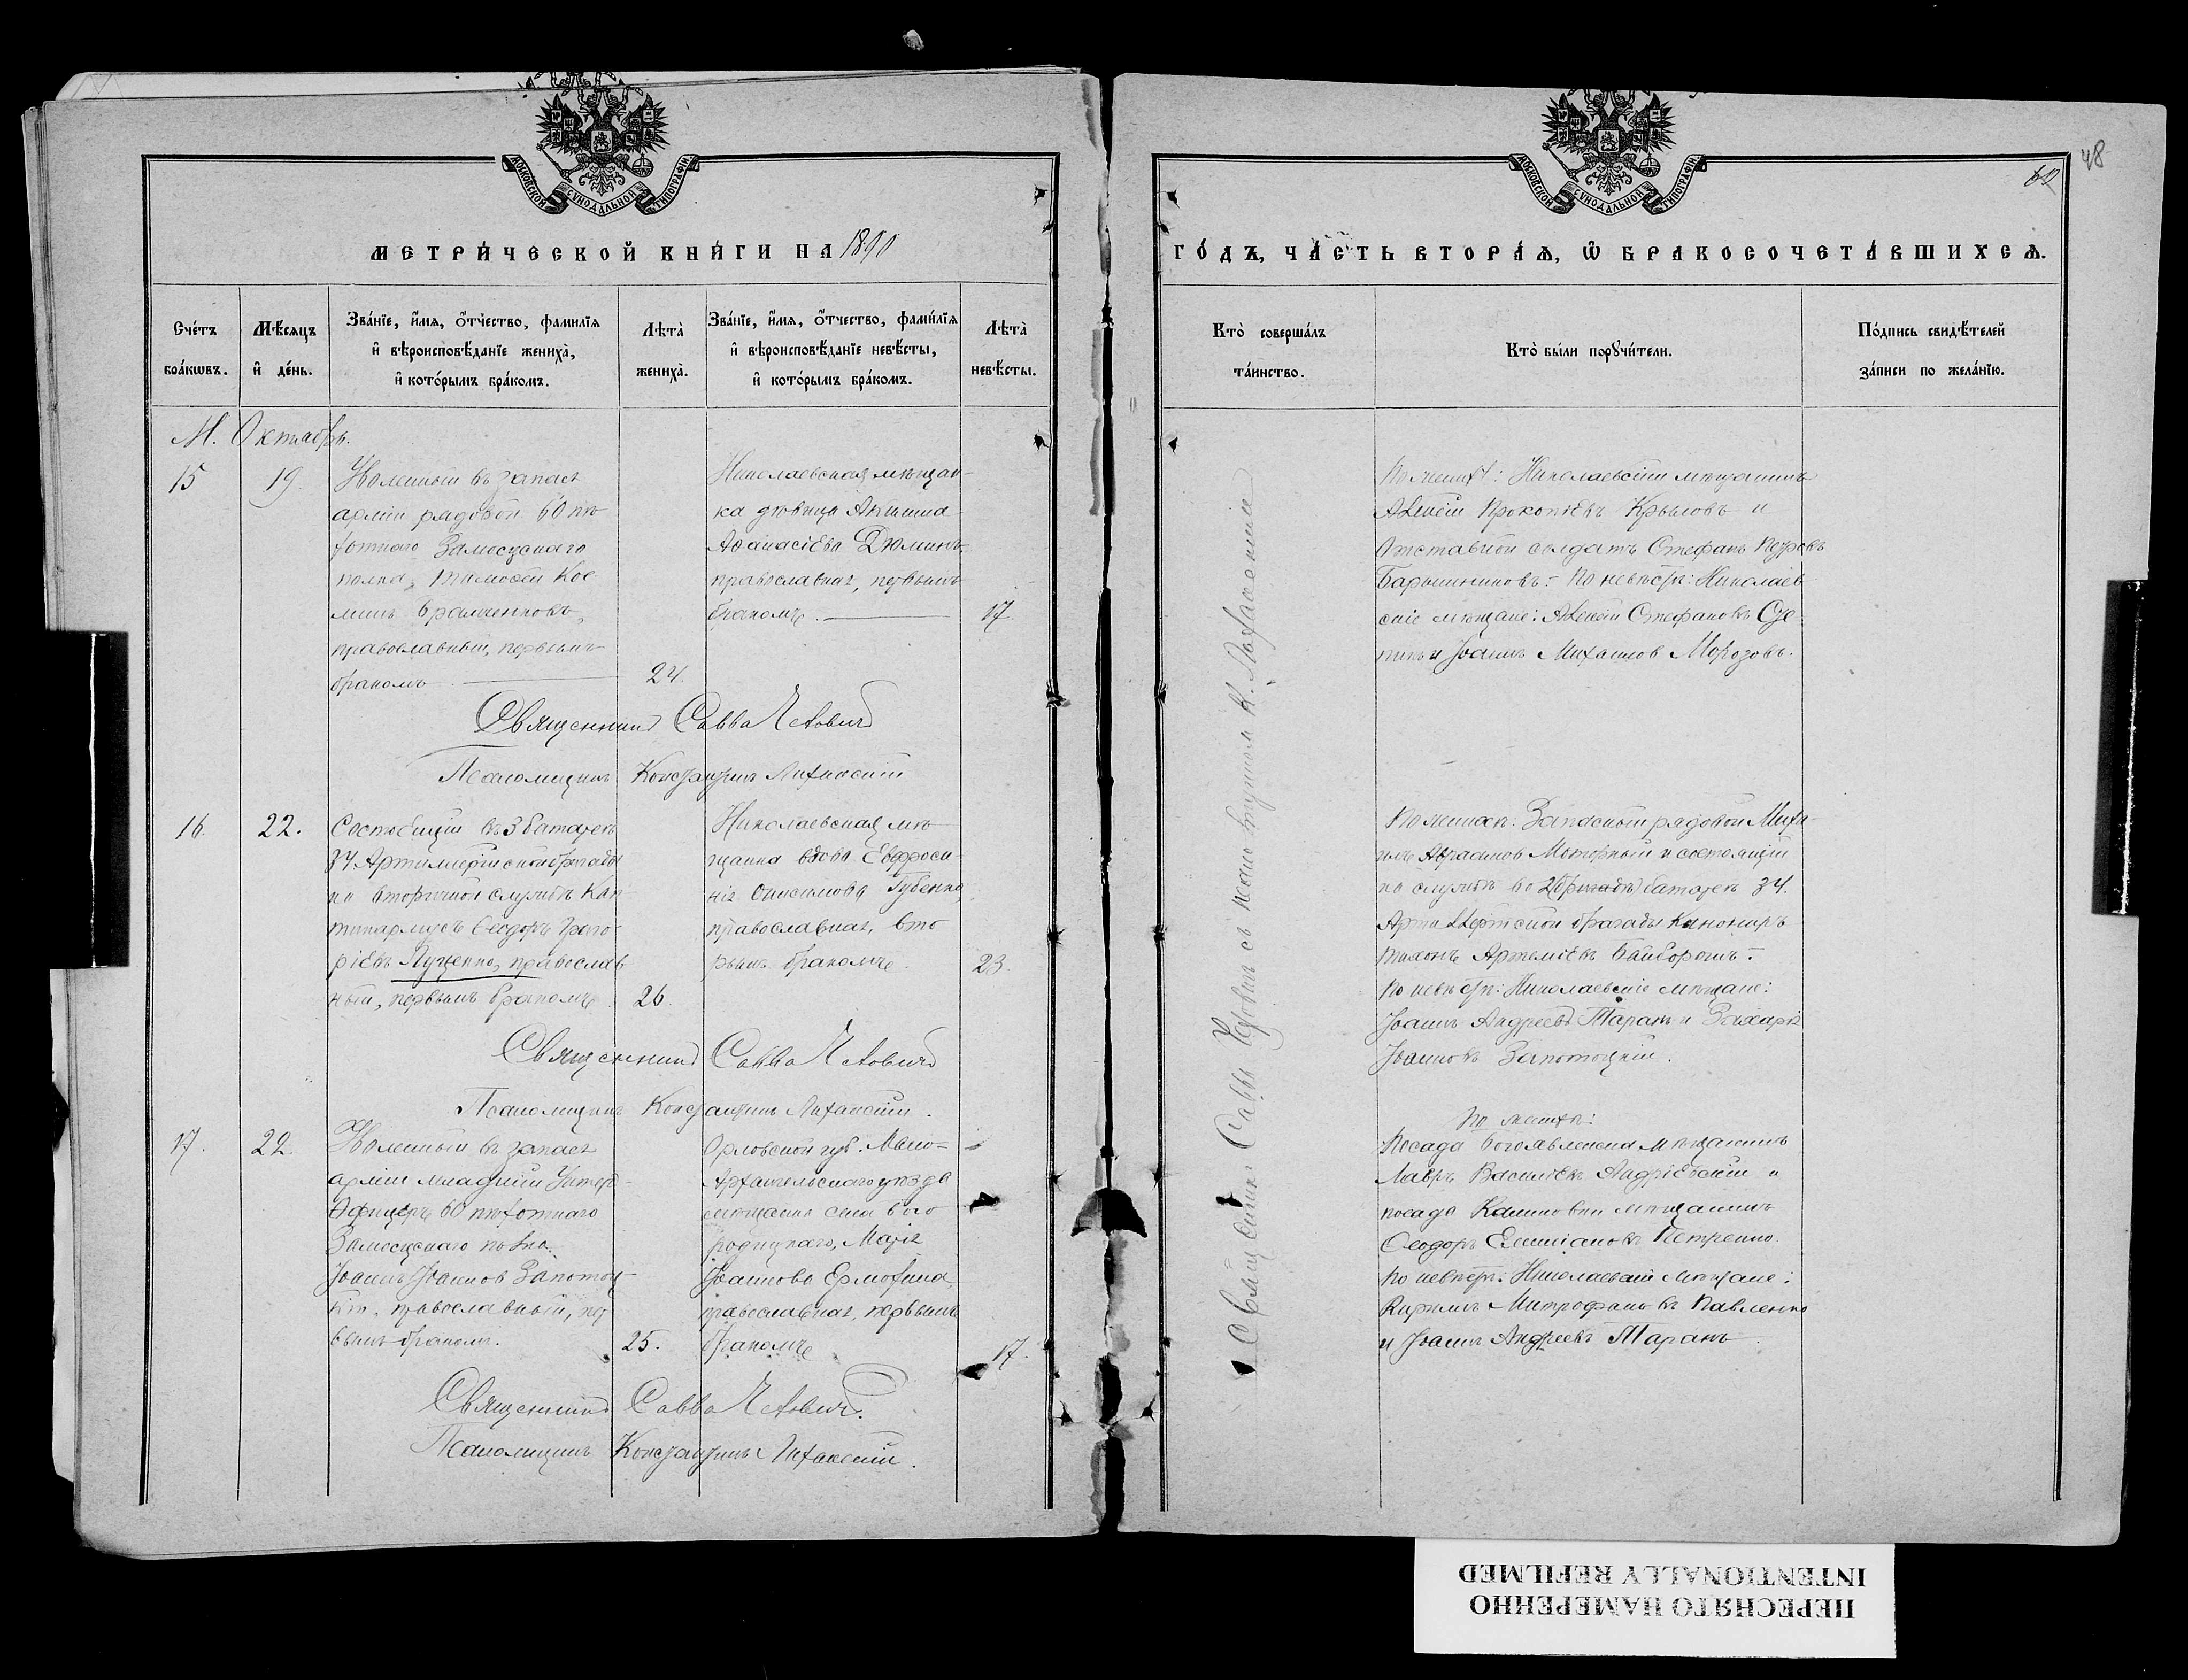 МОСКОВСКОЙ СѴНОДАЛЬНОЙ ТИПОГРАФІИ
МЕТРИ́ЧЕСКОЙ КНИ́ГИ НА 1890
Сче́тъ бра́кѡвъ.
Мѣ́сяцъ и҆ де́нь.
Зва́нїе, и҆́мя, ѻ҆́тчество, фами́лїя
и҆ вѣроисповѣ́данїе жениха̀,
и҆ кото́рымъ бра́комъ.
Лѣта̀ жениха̀.
Зва́нїе, и҆́мя, ѻ҆́тчество, фами́лїя
и҆ вѣроисповѣ́данїе невѣ́сты,
и҆ кото́рымъ бра́комъ.
Лѣта̀ невѣ́сты.
М. Октябрь.
15
19
Уволенный въ запасъ
арміи рядовой 60 пѣ
хотнаго Замосцскаго
полка, Тимоѳей Кос
минъ Врамченковъ,
православный, первымъ
бракомъ
24.
Николаевская мѣщан-
ка дѣвица Акилина
Аѳанасіева Дюминъ,
православная, первымъ
бракомъ.
17
Священникъ Савва Четовичъ
Псаломщикъ Константинъ Лихачскій
16.
22.
Состоящій въ 3 батареѣ
34 Артиллерійской бригады
на вторичной службѣ Кап
тинармусъ Ѳеодоръ Григо-
ріевъ Луценко, православ
ный, первымъ бракомъ.
26.
Николаевская мѣ
щанка вдова Евфроси-
нія Онисимова Губенко,
православная, вто
рымъ бракомъ
23.
Священникъ Савва Четовичъ
Псаломщикъ Константинъ Лихачскій.
17.
22
Уволенный въ запасъ
арміи младшій Унтеръ-
Офицеръ 60 пѣхотнаго
Замосцскаго полка
Іоаннъ Іоанновъ Запотоц-
кій, православный, пер
вымъ бракомъ.
25.
Орловской губ. Мало-
Архангельскаго уѣзда
мѣщанка села Бого
родицкаго, Марія
Іоаннова Ермохина,
православная, первымъ
бракомъ
17.
Священникъ Савва Четовичъ.
Псаломщикъ Константинъ Лихачскій.
48
МОСКОВСКОЙ СѴНОДАЛЬНОЙ ТИПОГРАФІИ
ГО́ДЪ, ЧА́СТЬ ВТОРА́Ѧ, Ѽ БРАКОСОЧЕТА́ВШИХСѦ.
Кто̀ соверша́лъ та́инство.
Кто̀ бы́ли порꙋчи́тели.
По́дпись свидѣ́телей за́писи по жела́нїю.
Священникъ Савва Четовичъ съ псаломщикомъ К.
По женихѣ: Николаевскій мѣщанинъ
Алексій Прокопіевъ Крыловъ и
Отставной солдатъ Стефанъ Петровъ
Барышниковъ. По невѣстѣ: Николаев
скіе мѣщане: Алексій Стефановъ
и Іоаннъ Михаиловъ Морозовъ.
По женихѣ: Запасный рядовой Миха
илъ Моторный и состоящій
на службѣ во 2 (бригадѣ) батареѣ 34.
Артиллерійской бригады Канониръ
Тихонъ Артеміевъ
По невѣстѣ: Николаевскіе мѣщане:
Іоаннъ Андреевъ Таранъ и Захарія
Іоанновъ Запотоцкій.
По женихѣ:
Посада Богоявленска мѣщанинъ
Лавръ Василіевъ Андріевскій и
посада Калиновки мѣщанинъ
Ѳеодоръ Емиліановъ Петренко.
По невѣстѣ: Николаевскіе мѣщане:
Кириллъ Митрофановъ Павленко
и Іоаннъ Андреевъ Таранъ.
ПЕРЕСНЯТО НАМЕРЕННО
INTENTIONALLY REFILMED